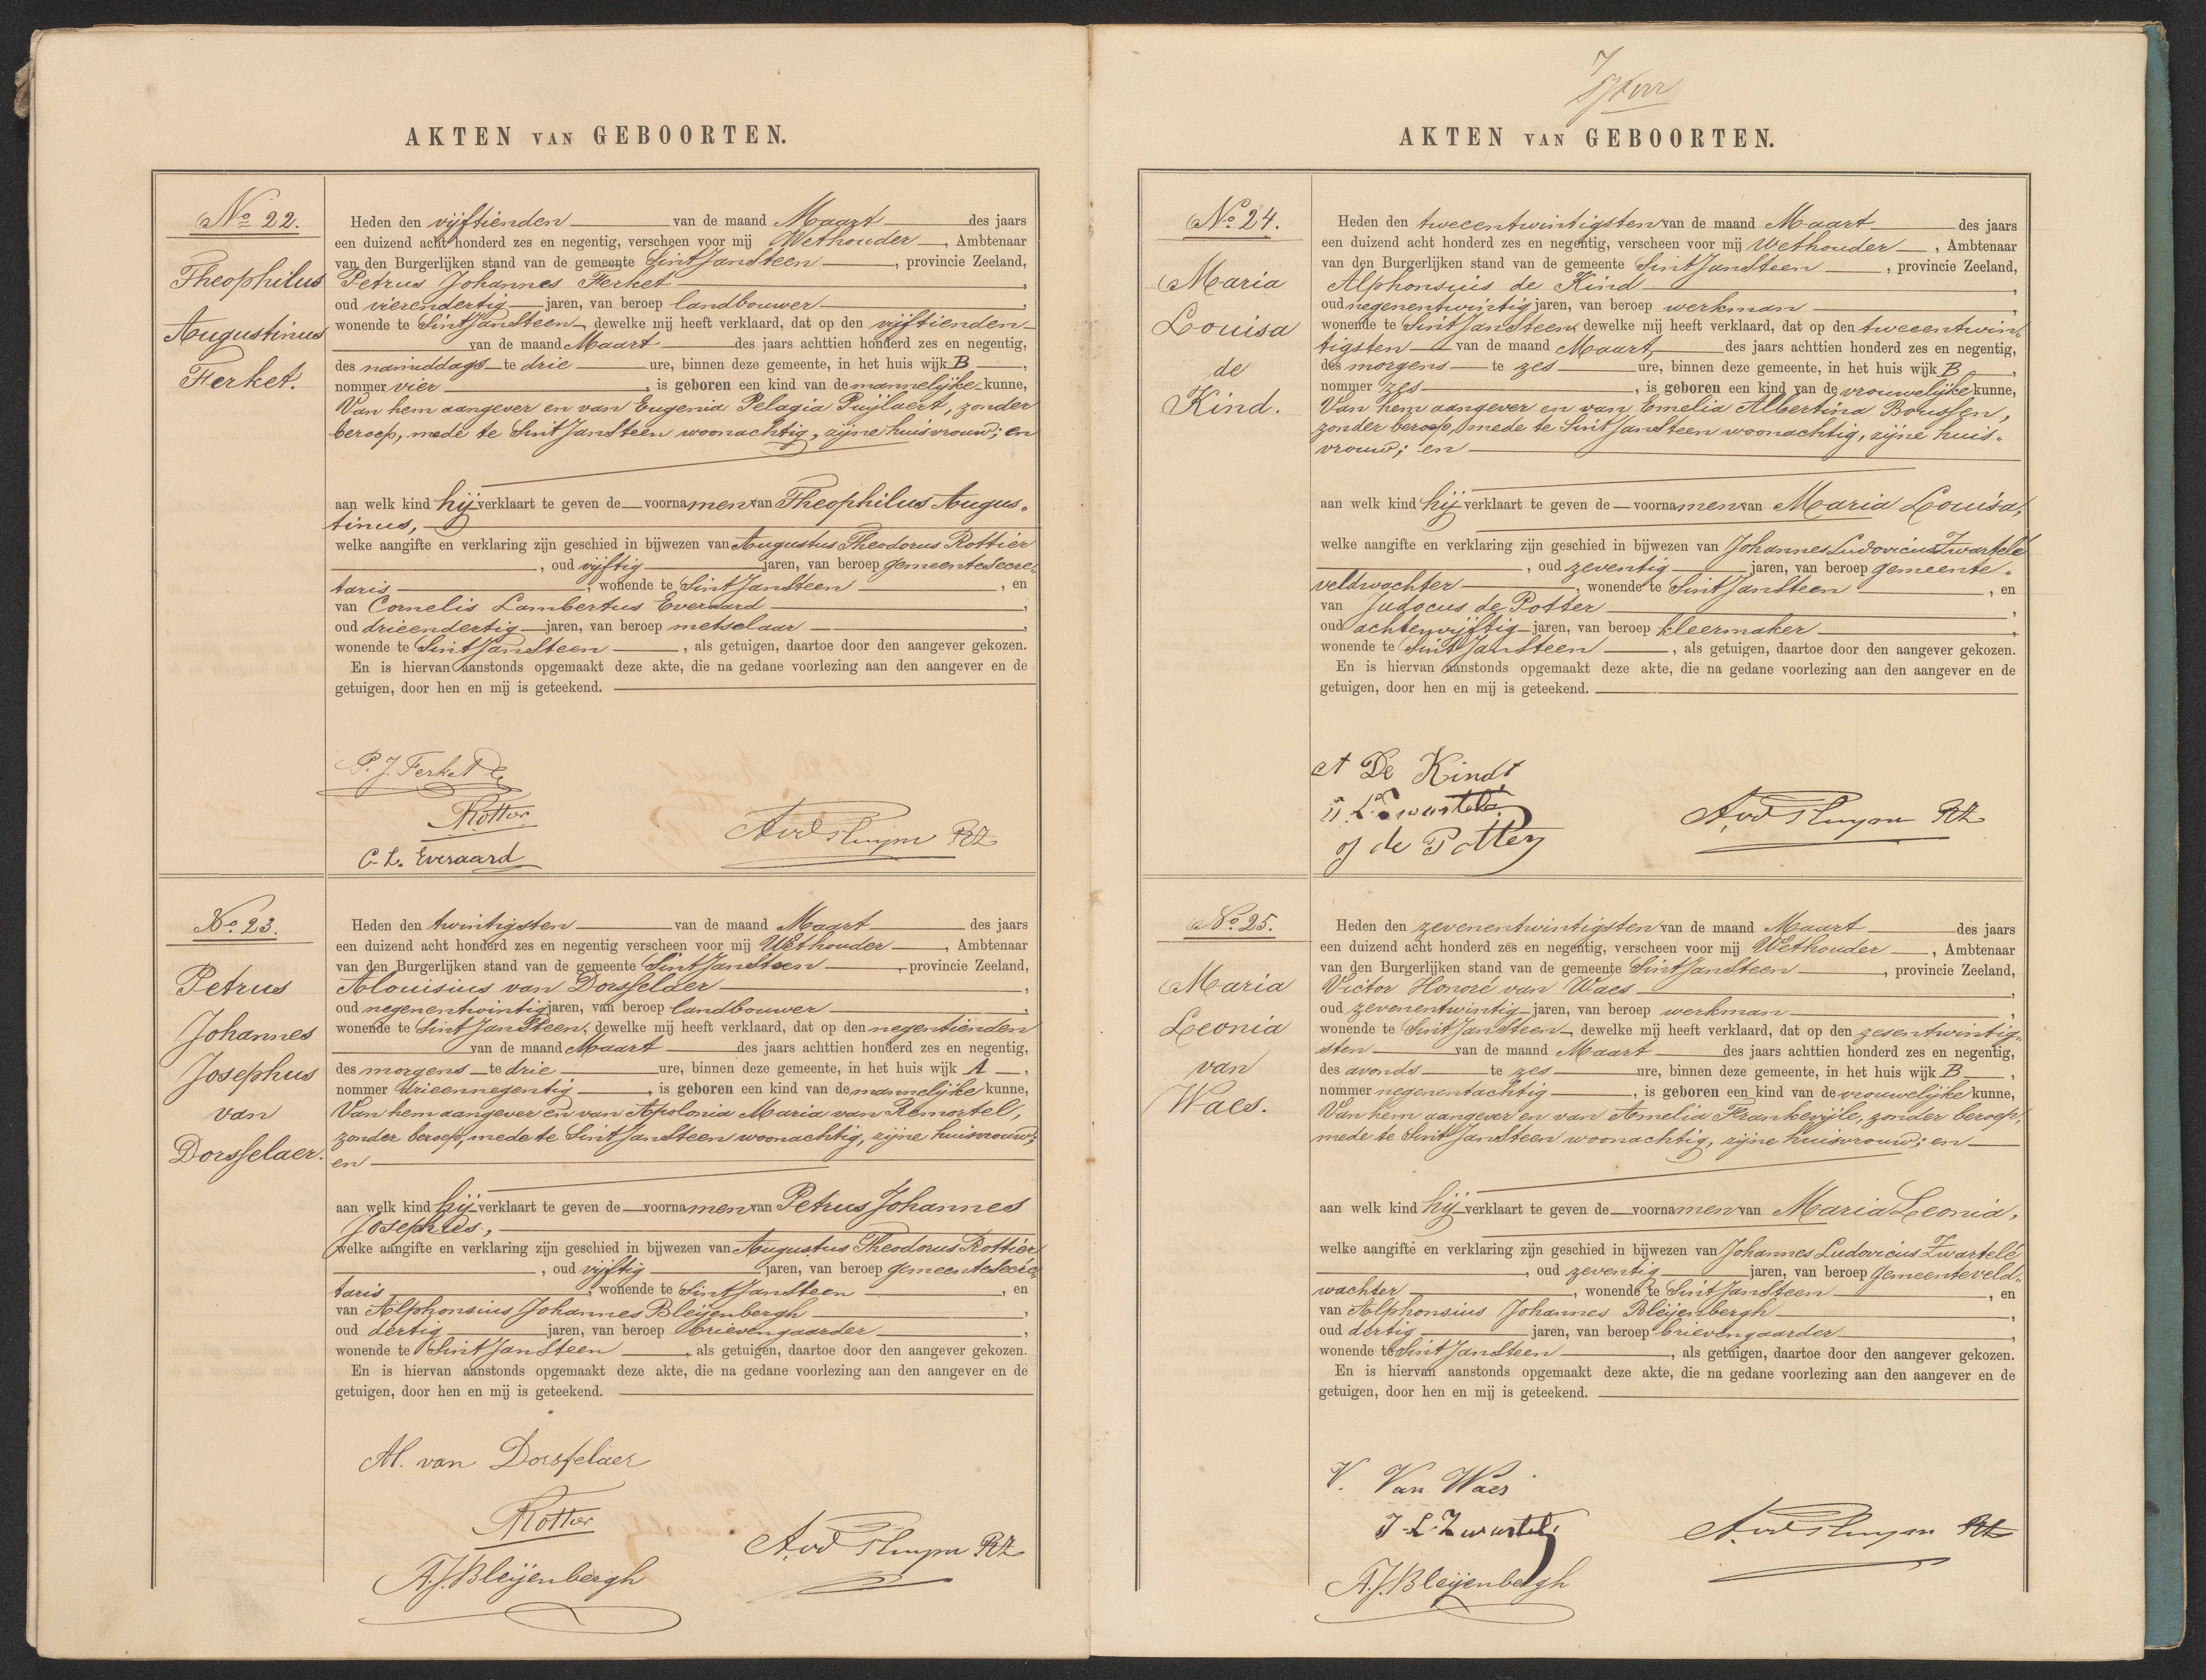 AKTEN VAN GEBOORTEN.
No 22.
Theophilus
Augustinus
Ferket.
Heden den vijftienden van de maand Maart des jaars
een duizend acht honderd zes en negentig, verscheen voor mij Wethouder, Ambtenaar
van den Burgerlijken stand van de gemeente Sint Jansteen, provincie Zeeland,
Petrus Johannes Ferket,
oud vierendertig jaren, van beroep landbouwer,
wonende te Sint Jansteen, dewelke mij heeft verklaard, dat op den vijftienden
van de maand Maart des jaars achttien honderd zes en negentig,
des namiddags te drie ure, binnen deze gemeente, in het huis wijk B,
nommer vier, is geboren een kind van de mannelijke kunne,
Van hem aangever en van Eugenia Pelagia Puijlaert, zonder
beroep, mede te Sint Jansteen woonachtig, zijne huisvrouw; en
aan welk kind hij verklaart te geven de voornamen van Theophilus Augus-
tinus,
welke aangifte en verklaring zijn geschied in bijwezen van Augustus Theodorus Rottier
, oud vijftig jaren, van beroep gemeente secre-
taris, wonende te Sint Jansteen, en
van Cornelis Lambertus Everaard,
oud drieendertig jaren, van beroep metselaar,
wonende te Sint Jansteen, als getuigen, daartoe door den aangever gekozen.
En is hiervan aanstonds opgemaakt deze akte, die na gedane voorlezing aan den aangever en de
getuigen, door hen en mij is geteekend.
P. J. Ferket
Rottier
C. L. Everaard
No 23.
Petrus
Johannes
Josephus
van
Dorsselaer.
Heden den twintigsten van de maand Maart des jaars
een duizend acht honderd zes en negentig verscheen voor mij Wethouder, Ambtenaar
van den Burgerlijken stand van de gemeente Sint Jansteen, provincie Zeeland,
Alouisius van Dorsselaer,
oud negenentwintig jaren, van beroep landbouwer,
wonende te Sint Jansteen, dewelke mij heeft verklaard, dat op den negentienden
van de maand Maart des jaars achttien honderd zes en negentig,
des morgens te drie ure, binnen deze gemeente, in het huis wijk A,
nommer drieennegentig, is geboren een kind van de mannelijke kunne,
Van hem aangever en van Apolonia Maria van Remortel,
zonder beroep, mede te Sint Jansteen woonachtig, zijne huisvrouw;
en
aan welk kind hij verklaart te geven de voornamen van Petrus Johannes
Josephus,
welke aangifte en verklaring zijn geschied in bijwezen van Augustus Theodorus Rottier
, oud vijftig jaren, van beroep gemeente secre-
taris, wonende te Sint Jansteen, en
van Alphonsius Johannes Bleijenbergh,
oud dertig jaren, van beroep brievengaarder,
wonende te Sint Jansteen, als getuigen, daartoe door den aangever gekozen.
En is hiervan aanstonds opgemaakt deze akte, die na gedane voorlezing aan den aangever en de
getuigen, door hen en mij is geteekend.
Al. van Dorsselaer
Rottier
A. J. Bleijenbergh
AKTEN VAN GEBOORTEN.
No 24.
Maria
Louisa
de
Kind.
Heden den tweeentwintigsten van de maand Maart des jaars
een duizend acht honderd zes en negentig, verscheen voor mij Wethouder, Ambtenaar
van den Burgerlijken stand van de gemeente Sint Jansteen, provincie Zeeland,
Alphonsius de Kind,
oud negenentwintig jaren, van beroep werkman,
wonende te Sint Jansteen, dewelke mij heeft verklaard, dat op den tweeentwin-
tigsten van de maand Maart des jaars achttien honderd zes en negentig,
des morgens te zes ure, binnen deze gemeente, in het huis wijk B,
nommer zes, is geboren een kind van de vrouwelijke kunne,
Van hem aangever en van Emelia Albertina Boussen,
zonder beroep, mede te Sint Jansteen woonachtig, zijne huis-
vrouw; en
aan welk kind hij verklaart te geven de voornamen van Maria Louisa,
welke aangifte en verklaring zijn geschied in bijwezen van Johannes Ludovicus Zwartelé
, oud zeventig jaren, van beroep gemeente-
veldwachter, wonende te Sint Jansteen, en
van Judocus de Potter,
oud achtenvijftig jaren, van beroep kleermaker,
wonende te Sint Jansteen, als getuigen, daartoe door den aangever gekozen.
En is hiervan aanstonds opgemaakt deze akte, die na gedane voorlezing aan den aangever en de
getuigen, door hen en mij is geteekend.
A De Kindt
J. L. Zwartelé
J de Potter
No 25.
Maria
Leonia
van
Waes.
Heden den zevenentwintigsten van de maand Maart des jaars
een duizend acht honderd zes en negentig, verscheen voor mij Wethouder, Ambtenaar
van den Burgerlijken stand van de gemeente Sint Jansteen, provincie Zeeland,
Victor Honoré van Waes,
oud zevenentwintig jaren, van beroep werkman,
wonende te Sint Jansteen, dewelke mij heeft verklaard, dat op den zesentwintig-
sten van de maand Maart des jaars achttien honderd zes en negentig,
des avonds te zes ure, binnen deze gemeente, in het huis wijk B,
nommer negenentachtig, is geboren een kind van de vrouwelijke kunne,
Van hem aangever en van Amelia Frankevijle, zonder beroep,
mede te Sint Jansteen woonachtig, zijne huisvrouw; en
aan welk kind hij verklaart te geven de voornamen van Maria Leonia,
welke aangifte en verklaring zijn geschied in bijwezen van Johannes Ludovicus Zwartelé
, oud zeventig jaren, van beroep gemeenteveld-
wachter, wonende te Sint Jansteen, en
van Alphonsius Johannes Bleijenbergh,
oud dertig jaren, van beroep brievengaarder,
wonende te Sint Jansteen, als getuigen, daartoe door den aangever gekozen.
En is hiervan aanstonds opgemaakt deze akte, die na gedane voorlezing aan den aangever en de
getuigen, door hen en mij is geteekend.
V. Van Waes
J. L. Zwartelé
A. J. Bleijenbergh